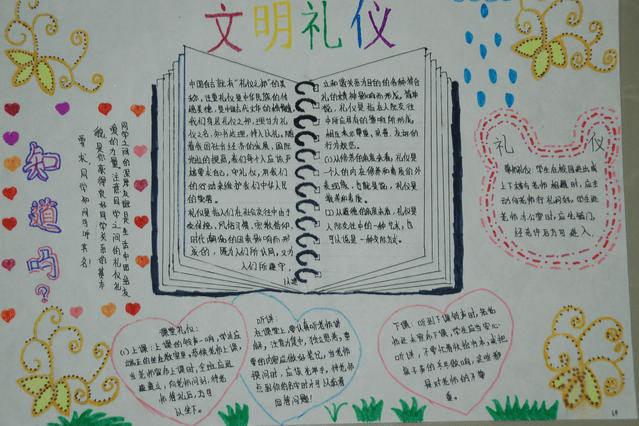 文明礼仪
中国自古就有"礼仪之邦"的美
称,注重礼仪是中华民族的传
我们有君礼仪之邦,理应为礼
仪之名,知书达理,待人以礼,随
着我国社会经济的发展,国际
地位的提高,我们每个人应该
遵守自己,守礼仪,用我们
的行动来维护我们中华人民
的荣誉。
礼仪是指人们在社会交往中由于
受传统,风俗习惯,宗教信仰,
时代潮流的因素影响而形
成的,既为人们所认同,又为
人们所遵守,
以建
立和谐关系为目的的各种符合
礼的精神要求的
貌,礼仪是指在人际交往
中
相互表示尊重,亲善,友好的
行为规范。
(1)从修养的角度来看,礼仪是
一个人的内在修养和素质的外
在表现,也就是说,礼仪是
教养和素质。
(2)从道德的角度来看,礼仪是
人际交往中的一种艺术,也
可以说是一种交际方式。
知道吗?
同学之间的深厚友谊是生活中的
爱的力量,注意同学之间的礼仪礼
貌是你获得良好同学关系的基本
要求,同学和同学间可彼此
礼 仪
尊师礼仪:学生在校园进出或
上下楼与老师相遇时,应主
动向老师行礼问好。学生进
老师办公室时,应先敲门,
经允许后方可进入。
课堂礼仪:
(1)上课:上课的铃声一响,学生应
端正地坐在教室里,恭候老师上课,
当老师宣布上课时,全班应迅
速肃立,向老师问好,待老
师答礼后,方可
以坐下。
听讲:
在课堂上,要认真听老师讲
解,注意力集中,独立思考,重
要的内容应做好笔记,当老师
提问时,应该先举手,待老师
点到你的名字时才可以站着
回答问题!
下课:听到下课铃声时,若老
师还未宣布下课,学生应当安心
听讲,不要忙着收拾书本,或把
桌子弄的乒乓作响,这些都
是对老师的不尊
重。